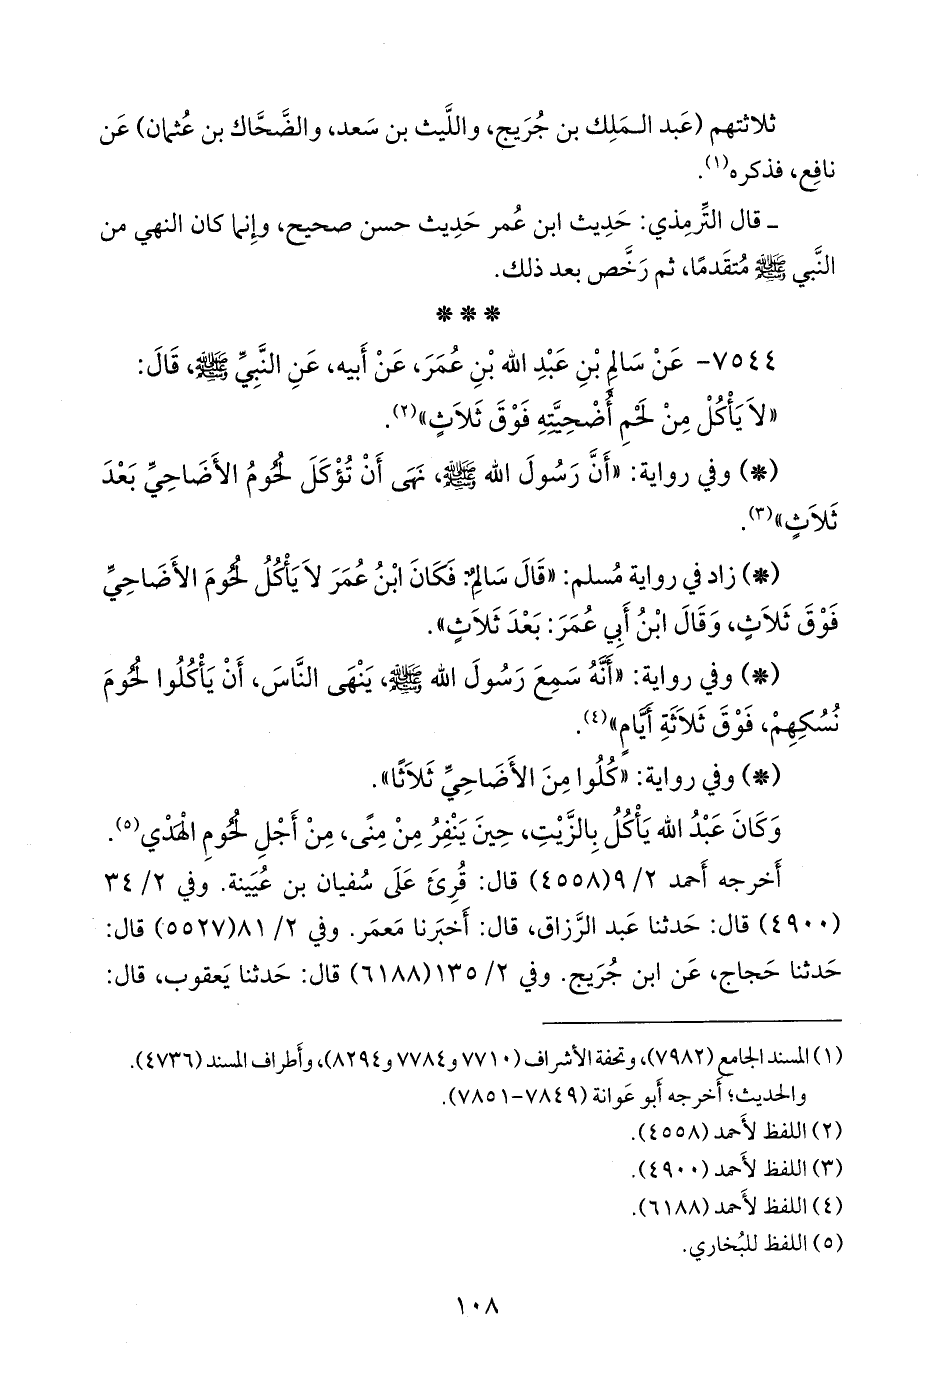 ثلاثتهم (عَبد الـمَلِك بن جُرَيج، واللَّيث بن سَعد، والضَّحَّاك بن عُثمان) عَن
نافِع، فذكره(١).
ـ قال التِّرمِذي: حَدِيث ابن عُمر حَدِيث حسن صحيح، وإِنما كان النهي من
النَّبي ﷺ مُتقَدمًا، ثم رَخَّص بعد ذلك.
* * *
٧٥٤٤- عَنْ سَالِمِ بْنِ عَبْدِ الله بْنِ عُمَرَ، عَنْ أَبيه، عَنِ النَّبِيِّ ﷺ، قَالَ:
«لاَ يَأْكُلْ مِنْ لَحْمِ أُضْحِيَّتِهِ فَوْقَ ثَلاَثٍ»(٢).
(*) وفي رواية: «أَنَّ رَسُولَ الله ﷺ، نَهَى أَنْ تُؤْكَلَ لُحُومُ الأَضَاحِيِّ بَعْدَ
ثَلاَثٍ»(٣).
(*) زاد في رواية مُسلم: «قَالَ سَالِمٌ: فَكَانَ ابْنُ عُمَرَ لاَ يَأْكُلُ لُحُومَ الأَضَاحِيِّ
فَوْقَ ثَلاَثٍ، وَقَالَ ابْنُ أَبِي عُمَرَ: بَعْدَ ثَلاَثٍ».
(*) وفي رواية: «أَنَّهُ سَمِعَ رَسُولَ الله ﷺ، يَنْهَى النَّاسَ، أَنْ يَأْكُلُوا لُحُومَ
نُسُكِهِمْ، فَوْقَ ثَلاَثَةِ أَيَّامٍ»(٤).
(*) وفي رواية: «كُلُوا مِنَ الأَضَاحِيِّ ثَلاَثًا».
وَكَانَ عَبْدُ الله يَأْكُلُ بِالزَّيْتِ، حِينَ يَنْفِرُ مِنْ مِنًى، مِنْ أَجْلِ لُحُومِ الْهَدْيِ(٥).
أَخرجه أَحمد ٢/ ٩(٤٥٥٨) قال: قُرِئَ عَلَى سُفيان بن عُيَينة. وفي ٢/ ٣٤
(٤٩٠٠) قال: حَدثنا عَبد الرَّزاق، قال: أَخبَرنا مَعمَر. وفي ٢/ ٨١(٥٥٢٧) قال:
حَدثنا حَجاج، عَن ابن جُرَيج. وفي ٢/ ١٣٥(٦١٨٨) قال: حَدثنا يَعقوب، قال:
(١) المسند الجامع (٧٩٨٢)، وتحفة الأشراف (٧٧١٠ و٧٧٨٤ و٨٢٩٤)، وأَطراف المسند (٤٧٣٦).
والحديث؛ أَخرجه أَبو عَوانة (٧٨٤٩-٧٨٥١).
(٢) اللفظ لأَحمد (٤٥٥٨).
(٣) اللفظ لأَحمد (٤٩٠٠).
(٤) اللفظ لأَحمد (٦١٨٨).
(٥) اللفظ للبُخاري.
١٠٨